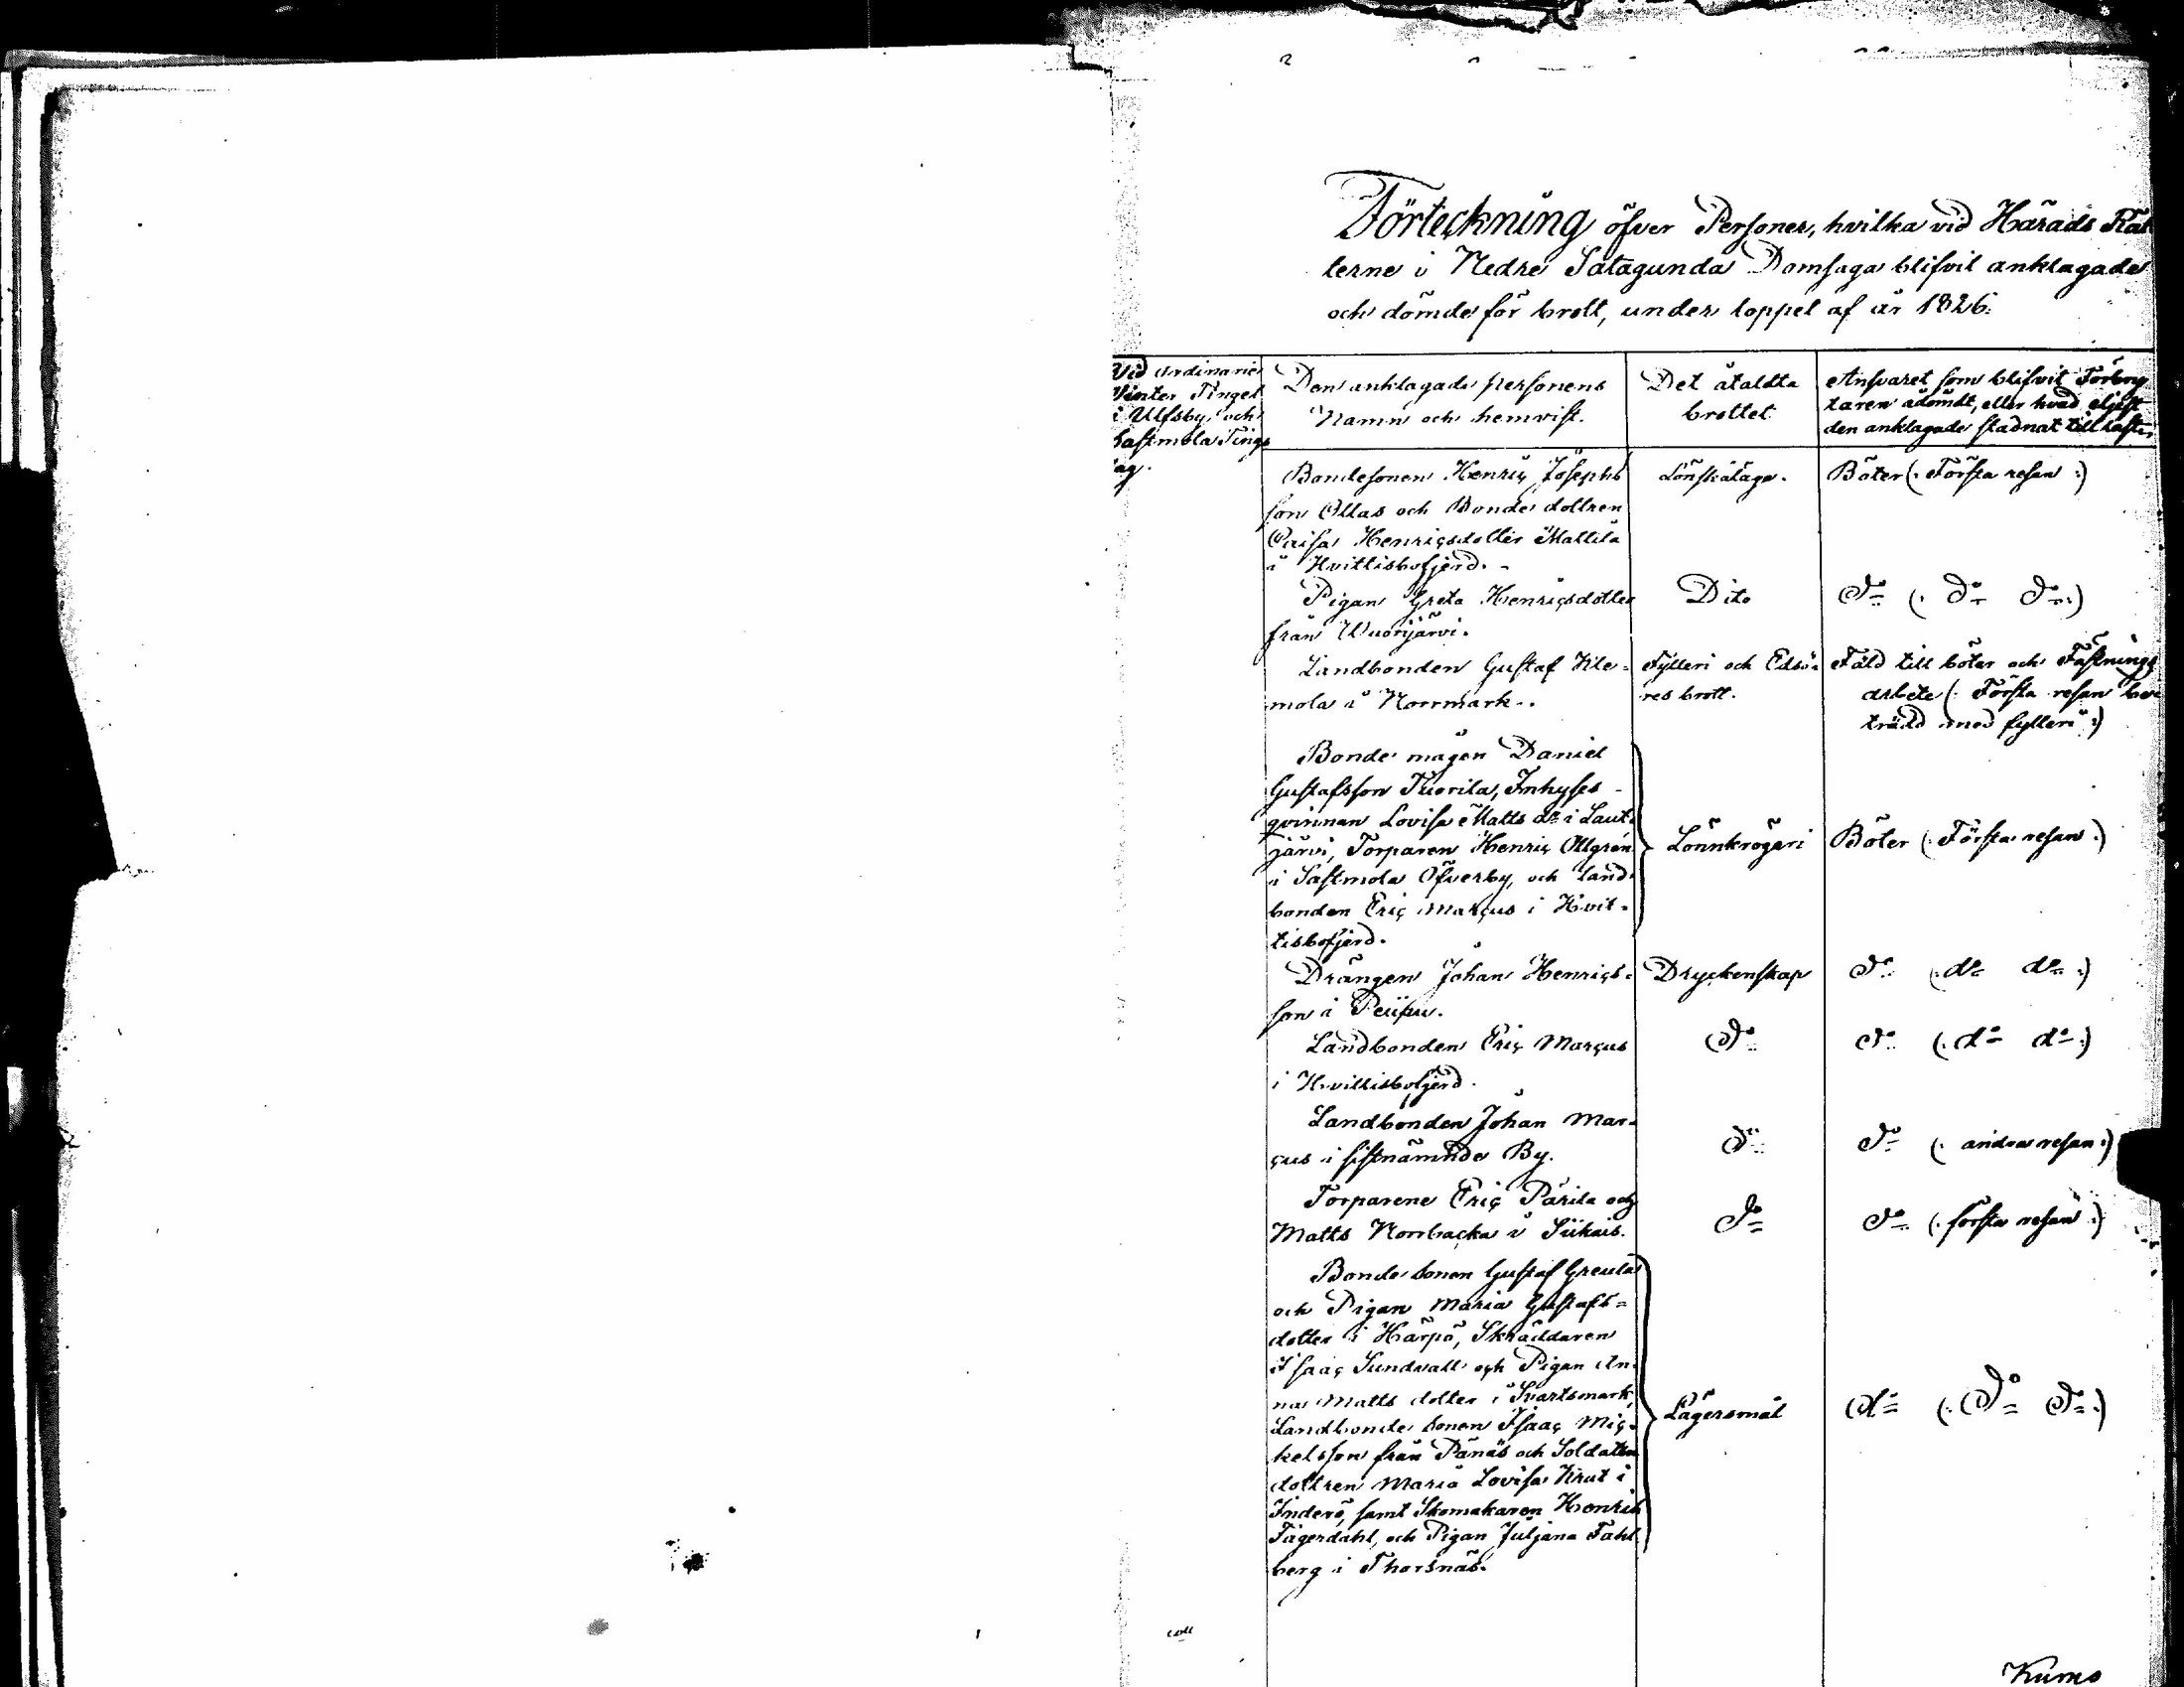 Förteckning öfver Personer, hvilka vid Härads Rät
terne i Nedre Satagunda Domsaga blifvit anklagade
och dömde för brott, under loppet af år 1826.
Vid ordinarie
Vinter Tinget
i Ulfsby och
Sastmola Tings
lag.
Den anklagade personens
Namn och hemvist.
Det åtaldta
brottet
Ansvaret som blifvit Förbry
taren ådömdt, eller hvad eljest
den anklagade stadnat till last
Bondesonen Henric Josephs
son Ollas och Bonde dottren
Caisa Henricsdotter Mattila
i Hvittisbofjerd.
Lönskaläge.
Böter (: Första resan :)
Pigan Greta Henricsdotter
från Wuorijärvi.
Dito
Do (: Do Do :)
Landbonden Gustaf Kle=
mola i Norrmark.
Fylleri och Edsö=
res brott.
Fäld till böter och Fästnings
arbete (: Första resan be
trädd med fylleri :)
Bonde mågen Daniel
Gustafsson Tuorila, Inhyses
qvinnan Lovisa Matts dr i Laut
järvi, Torparen Henric Ollgren
i Sastmola Öfverby, och land
bonden Eric Marcus i Hvit=
tisbofjerd.
Lönnkrögeri
Böter (: Första resan :)
Drängen Johan Henrics=
son i Peipu.
Dryckenskap
Do (: do do :)
Landbonden Eric Marcus
i Hvittisbofjerd.
Do
Do (: do do :)
Landbonden Johan Mar=
cus i sistnämnde By.
Do
Do (: andra resan :)
Torparene Eric Pärila och
Matts Norrbacka i Siikais.
Do
Do (: första resan :)
Bonde sonen Gustaf Greula
och Pigan Maria Gustafs=
dotter i Härpö, Skräddaren
Isaac Sundvall och Pigan An
na Matts dotter i Svartsmark,
Landbonde sonen Isaac Mic=
kelsson från Pånäs och Soldaten
dottren Maria Lovisa Krut i
Inderö, samt Skomakaren Henrik
Fägerdahl, och Pigan Juljana Fahl
berg i Thorsnäs.
Lägersmål
do (: Do Do :)
Kumo